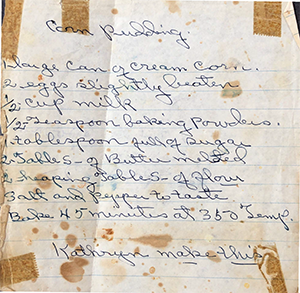 Corn Pudding
1 large can of cream corn.
2 eggs slightly beaten
1/2 cup milk
1/2 teaspoon baking powders.
1 tablespoon full of sugar
2 Tables - of Butter melted
2 heaping Tables - of flour
Salt and Pepper to taste.
Bake 45 minutes at 350° Temp.
Kathryn make this